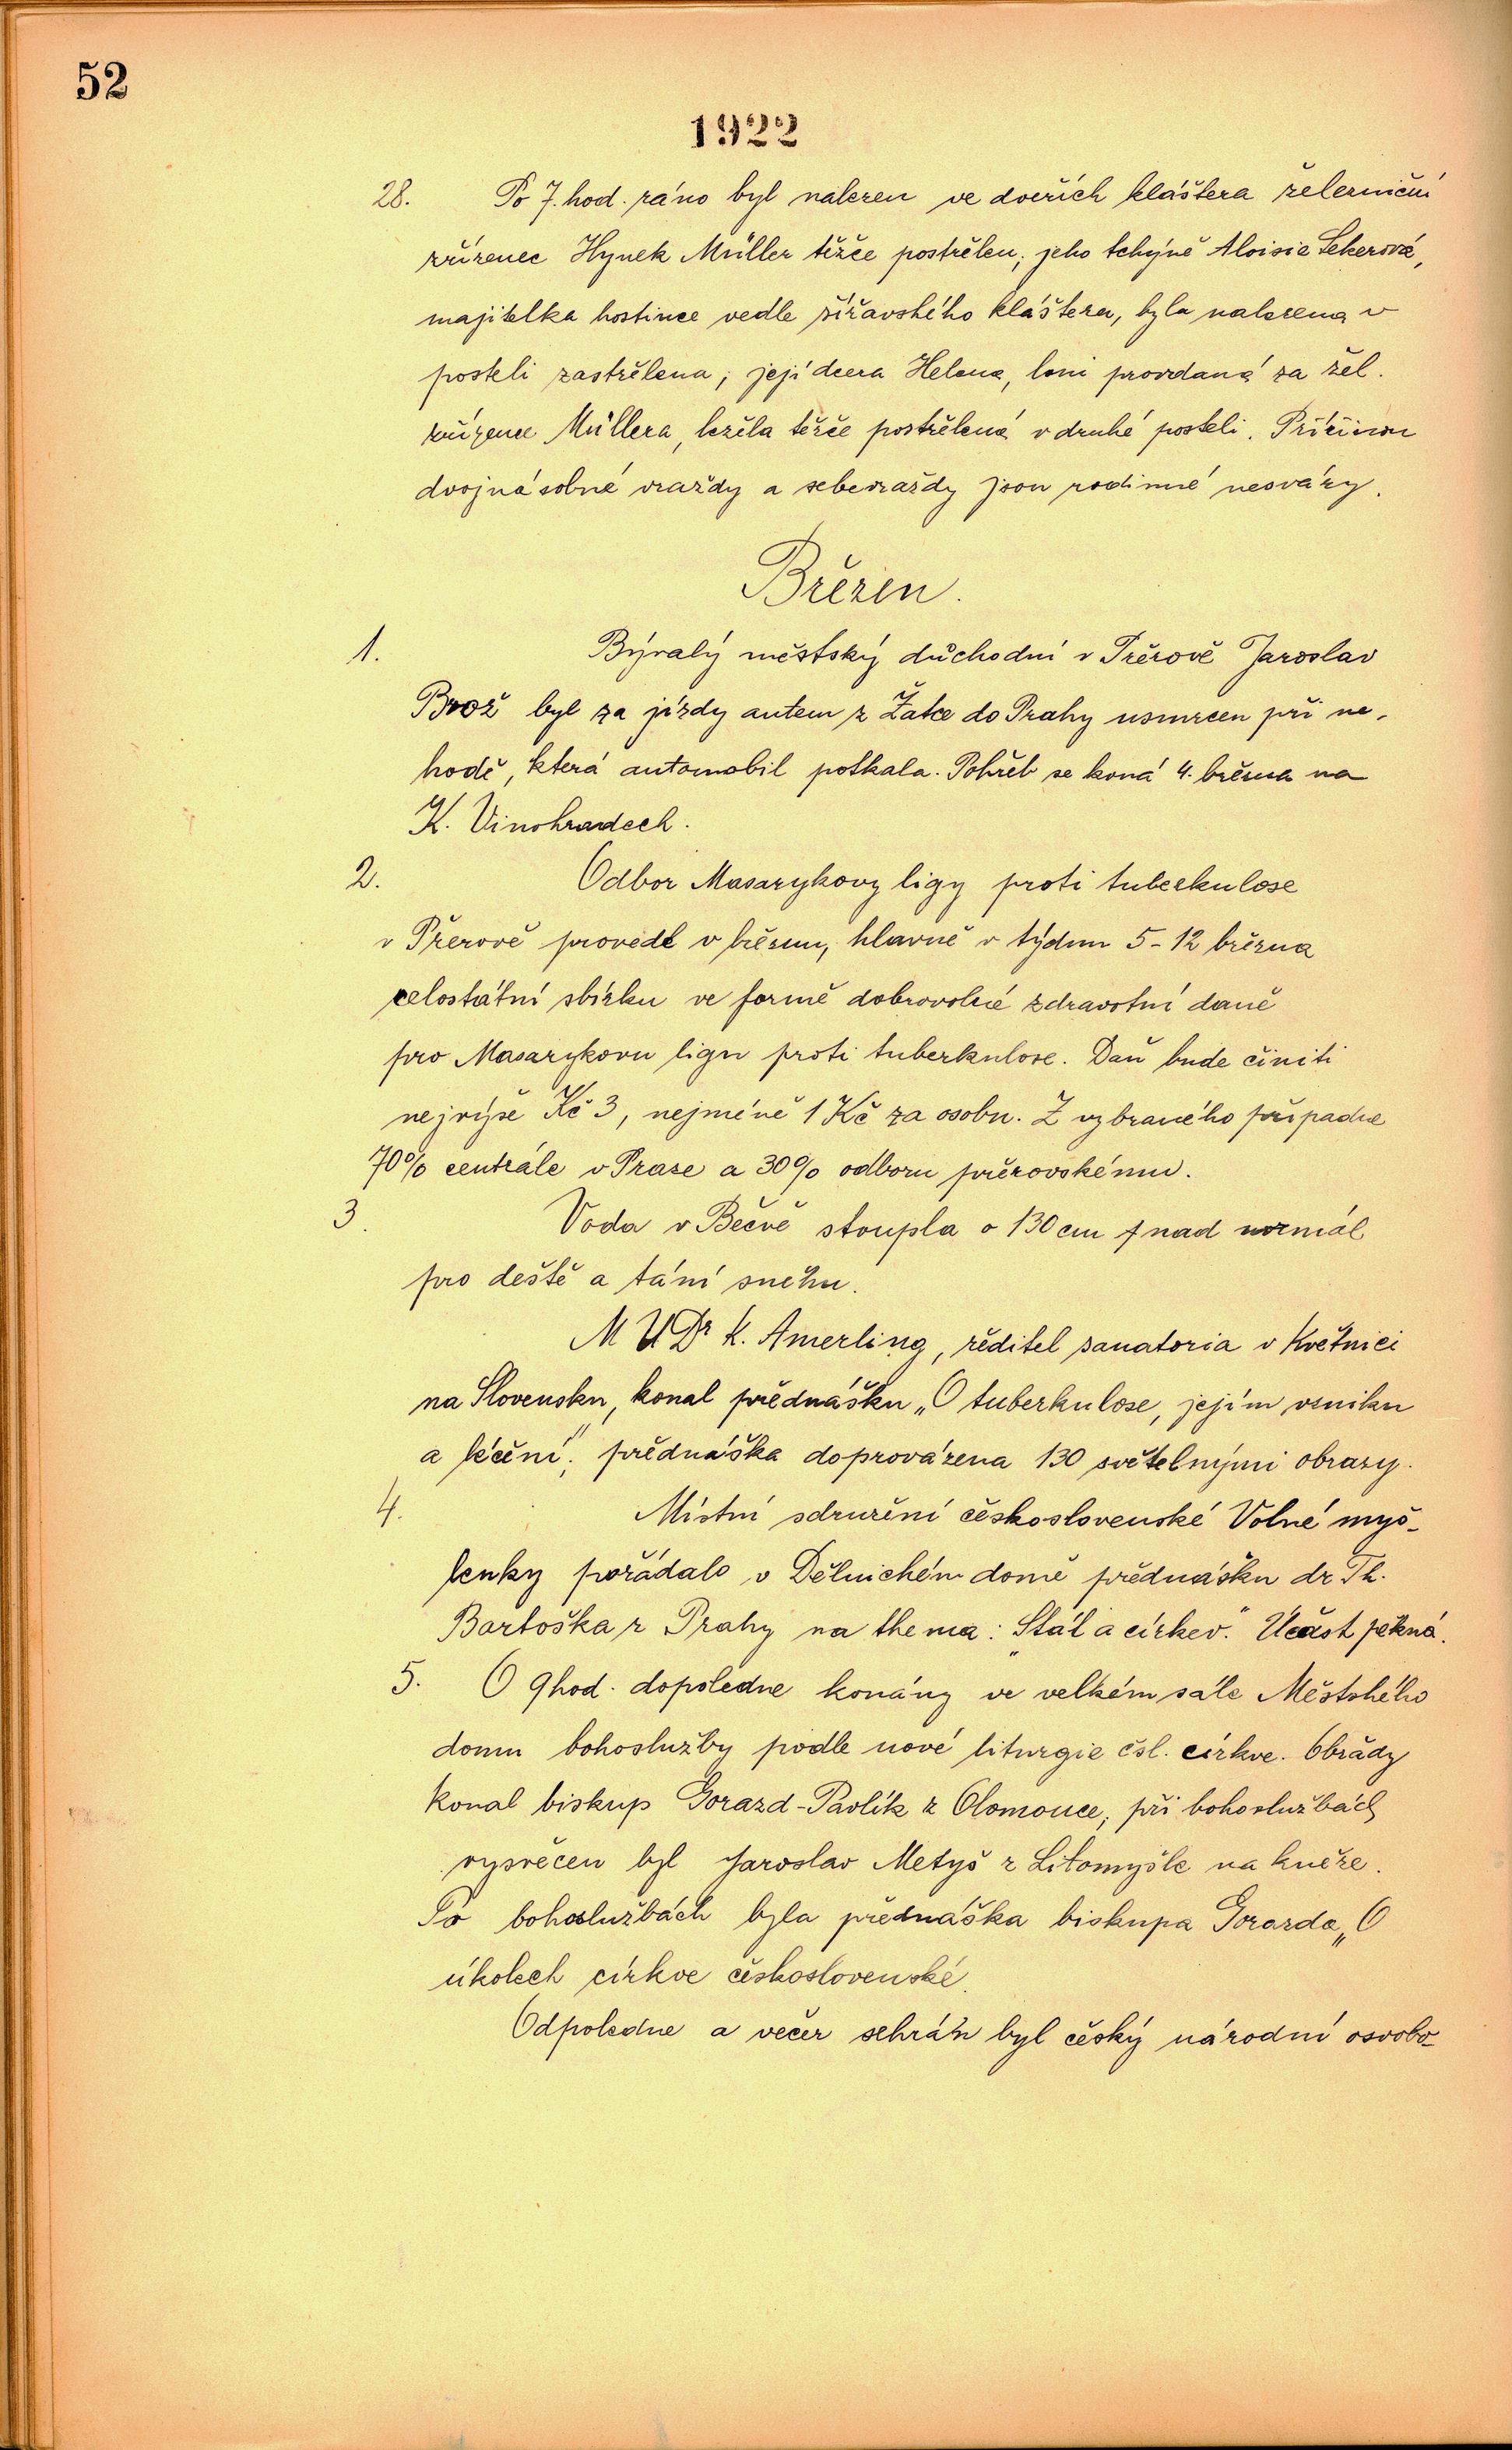 52
1922
28. Po 7. hod. ráno byl nalezen ve dveřích kláštera železniční
zřízenec Hynek Müller těžce postřelen; jeho tchýně Aloisie Sekerová,
majitelka hostince vedle šířavského kláštera, byla nalezena v
posteli zastřelena; její dcera Helena, loni provdaná za žel.
zřízence Müllera, ležela těžce postřelená v druhé posteli. Příčinou
dvojnásobné vraždy a sebevraždy jsou rodinné nesváry.
Březen.
1. Bývalý městský důchodní v Přerově Jaroslav
Brož byl za jízdy autem z Žatce do Prahy usmrcen při ne-
hodě, která automobil potkala. Pohřeb se koná 4. března na
K. Vinohradech.
2. Odbor Masarykovy ligy proti tuberkulose
v Přerově provedl v březnu, hlavně v týdnu 5-12 března
celostátní sbírku ve formě dobrovolné zdravotní daně
pro Masarykovu ligu proti tuberkulose. Daň bude činiti
nejvýše Kč 3, nejméně 1 Kč za osobu. Z vybraného připadne
70% centrále v Praze a 30% odboru přerovskému.
3. Voda v Bečvě stoupla o 130 cm nad normál
pro deště a tání sněhu.
MUDr K. Amerling, ředitel sanatoria v Květnici
na Slovensku, konal přednášku „O tuberkulose, jejím vzniku
a léčení"; přednáška doprovázena 130 světelnými obrazy.
4. Místní sdružení československé Volné myš-
lenky pořádalo v Dělnickém domě přednášku dr Th.
Bartoška z Prahy na thema: „Stát a církev." Účast pěkná.
5. O 9 hod. dopoledne konány ve velkém sále Městského
domu bohoslužby podle nové liturgie čsl. církve. Obřady
konal biskup Gorazd-Pavlík z Olomouce; při bohoslužbách
vysvěcen byl Jaroslav Metyš z Litomyšle na kněze.
Po bohoslužbách byla přednáška biskupa Gorazda „O
úkolech církve československé.
Odpoledne a večer sehrán byl český národní osvobo-